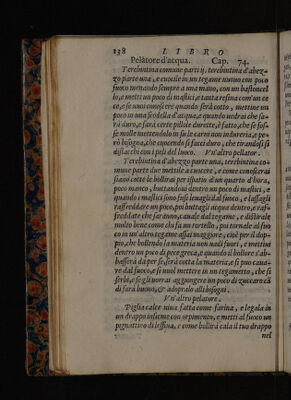 138 LIBRO
Pelatore d'acqua. Cap. 74.
Terebintina comune parti ij. terebintina d'abez-
zo parte una, e cuocile in un tegame nuouo con poco
fuoco menando sempre a una mano, con un bastoncel
lo, e metti un poco di mastici, e tanta resina com'un ce
ce, e se uuoi conoscere quando serà cotto, mettine un
poco in una scodella d'acqua, e quando uedrai che sa-
rà duro, e farà certe pillole durette, è fatto, che se fos-
se molle mettendolo in su le carni non indureria, e pe-
rò bisogna, che cuocendo si facci duro, che tirandosi si
distacchi con i peli del luoco. Vn'altro pelator.
Terebintina d'abezzo parte una, terebintina co-
mune parte due mettile a cuocere, e come conoscerai
siano cotte le bollirai per ispatio d'un quarto d'hora,
poco manco, buttandoui dentro un poco di mastici, e
quando i mastici sono fusi leuagli dal fuoco, e lassagli
raffreddare un poco, poi buttagli acqua dentro, e raf-
freddate che saranno, cauale dal tegame, e distirale
molto bene come chi fa un tortello, poi tornale al fuo
co in un'altro tegame assai maggiore, cioè per il dop-
pio, che bollendo la materia non uadi fuori, e mettiui
dentro un poco di pece greca, e quando il bollore s'ab-
basserà da per se, serà cotta la materia, e si puo caua-
re dal fuoco, e si uuol mettere in un tegametto, che si
serbi, e se gli uorrai aggiungere un poco di zuccaro cā
di sarà buono, & adopralo alli bisogni.
Vn'altro pelatore.
Piglia calce uiua fatta come farina, e legala in
un drappo insieme con orpimento, e metti al fuoco un
pignattino di lessiua, e come bollirà cala il tuo drappo
nel